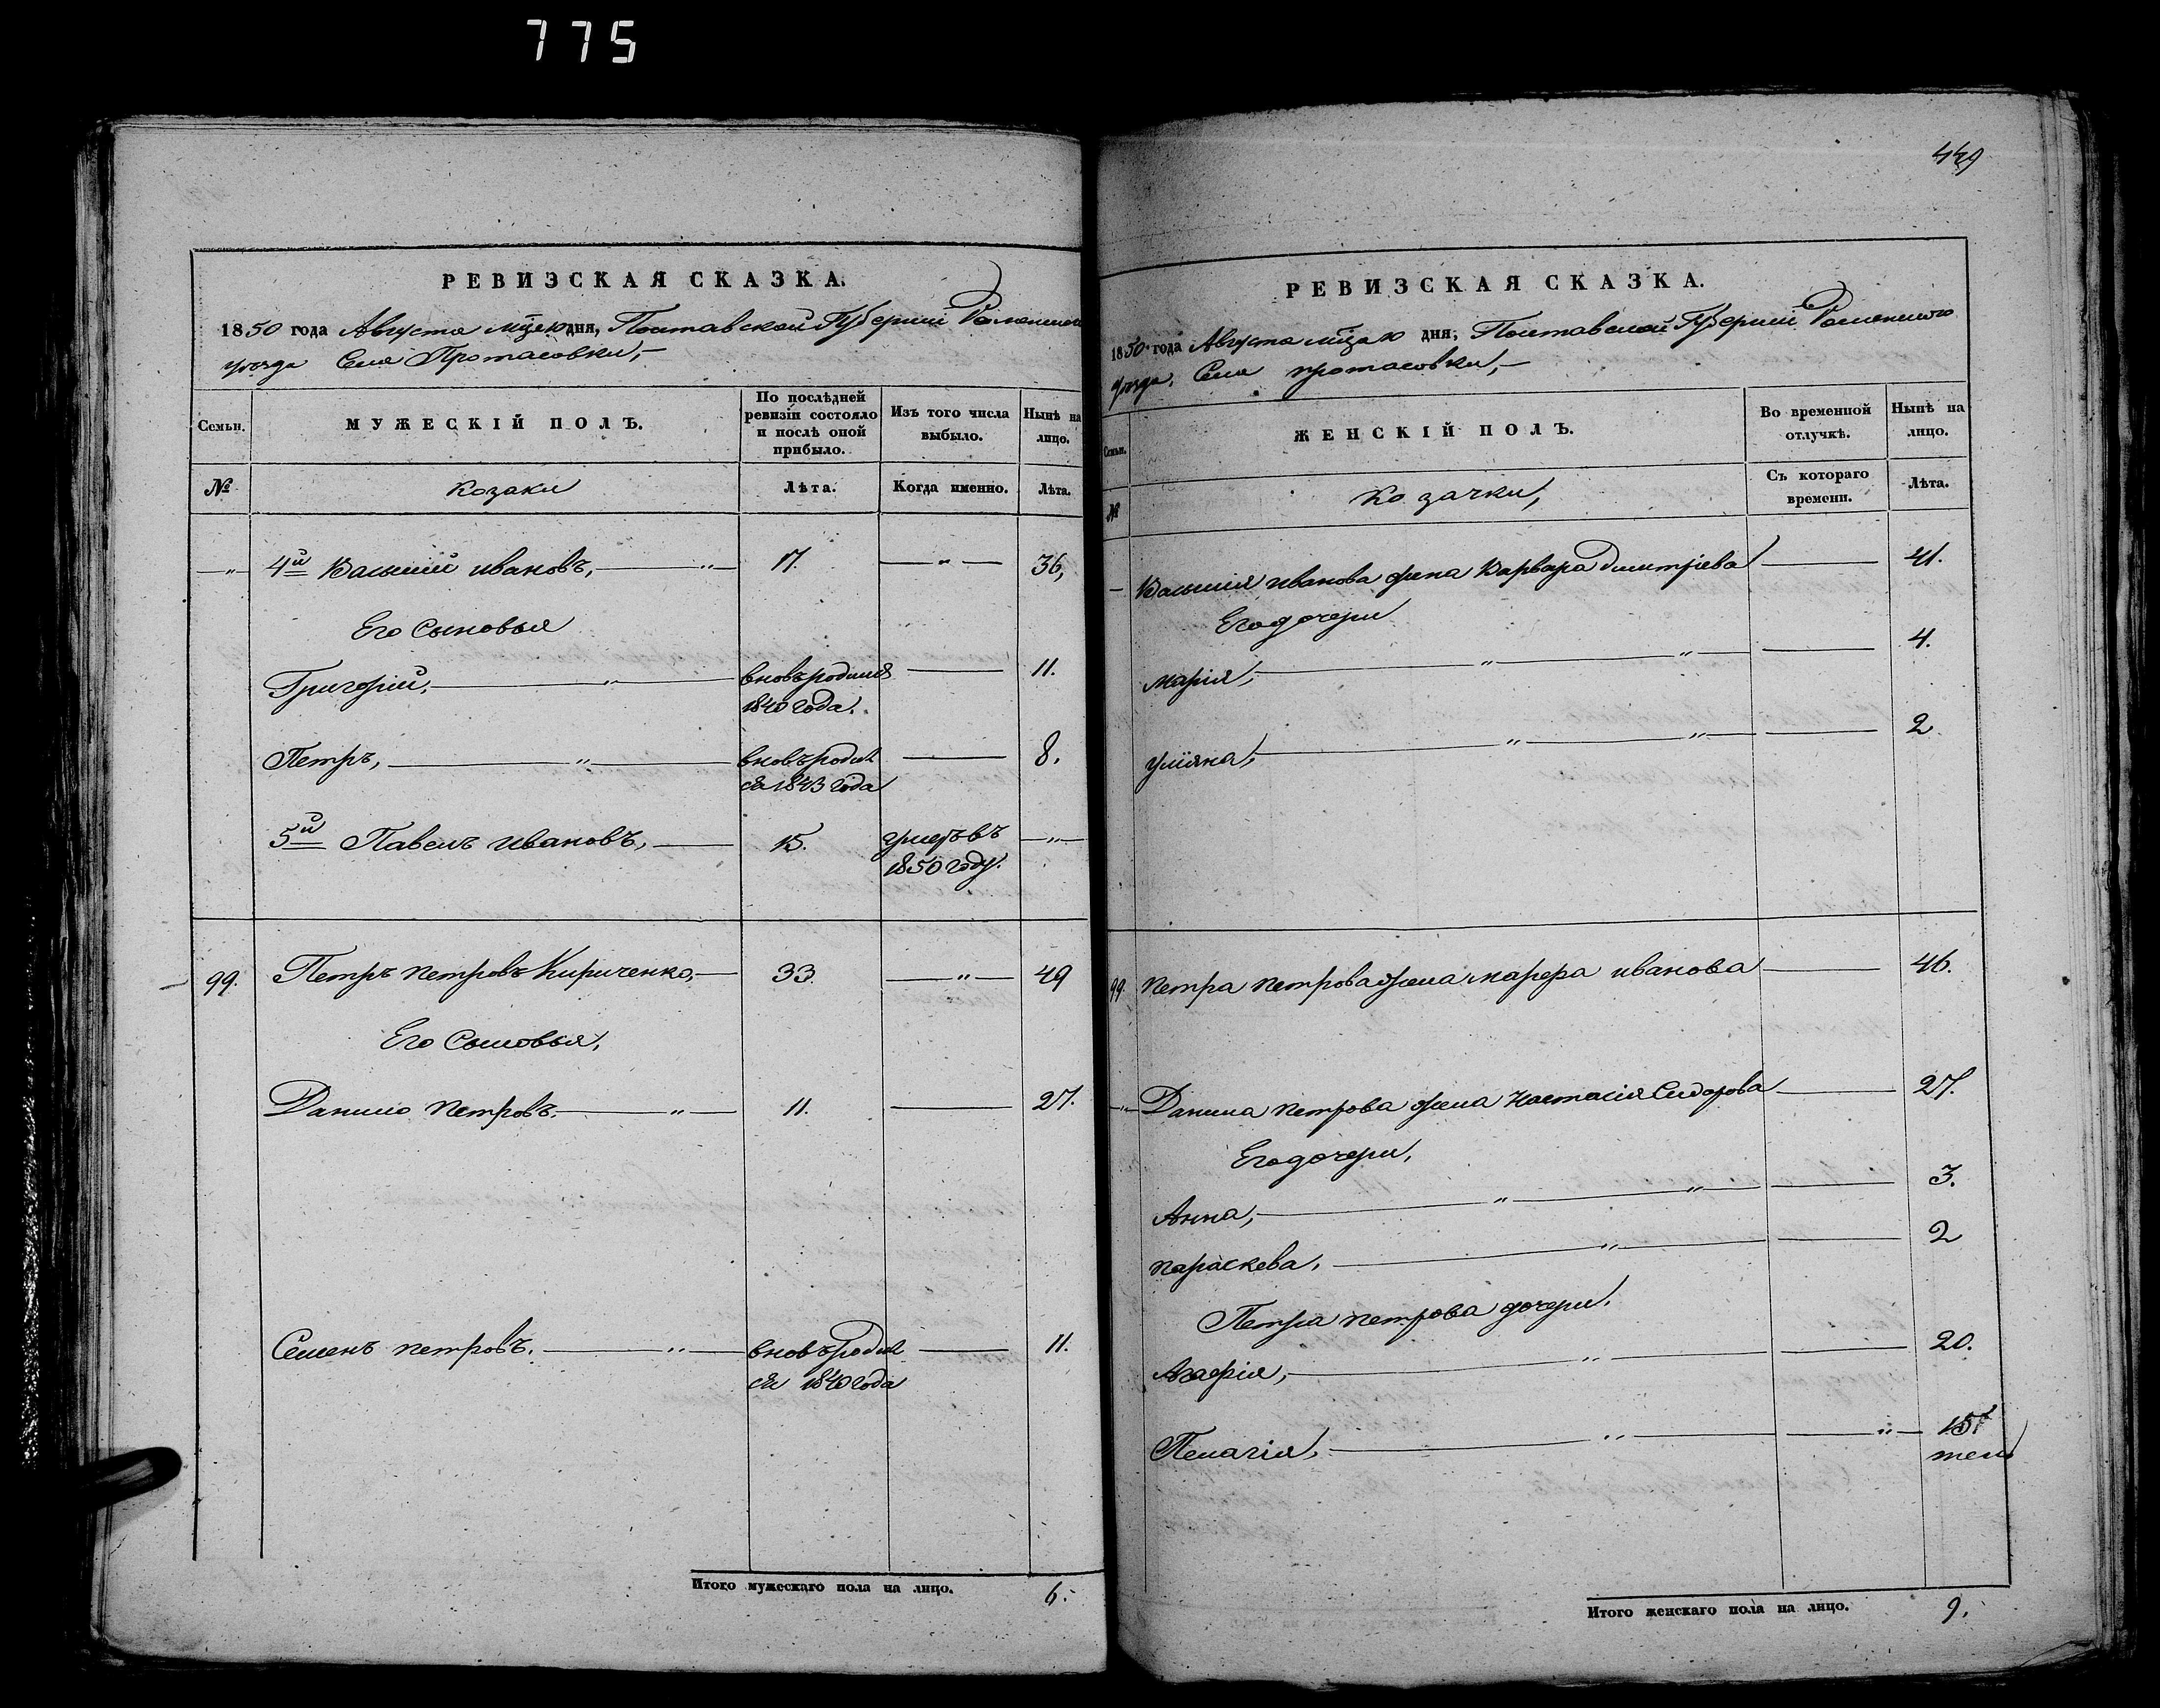 775
РЕВИЗСКАЯ СКАЗКА.
1850 года Августа мца дня, Полтавской Губерніи Роменского
уѣзда Села Протасовки,
Семьи.
МУЖЕСКІЙ ПОЛЪ.
По послѣдней ревизіи состояло и послѣ оной прибыло.
Изъ того числа выбыло.
Нынѣ на лицо.
№
Козаки
Лѣта.
Когда именно.
Лѣта.
4й Василий ивановъ, 17. 36,
Его Сыновья
Григорій, вновьродился 11.
1840 года.
Петръ, вновьродил 8.
ся 1843 года
5й Павелъ ивановъ, 15. умеръвъ
1850 году.
99. Петръ петровъ Кириченко, 33. 49
Его Сыновья,
Данило петровъ. 11. 27.
Семенъ петровъ. вновьродил 11.
ся 1840 года
Итого мужескаго пола на лицо. 6.
449
РЕВИЗСКАЯ СКАЗКА.
1850 года Августа мца дня, Полтавской Губерніи Роменского
уѣзда, Села протасовки,
Семьи.
ЖЕНСКІЙ ПОЛЪ.
Во временной отлучкѣ.
Нынѣ на лицо.
№
Козачки,
Съ котораго времени.
Лѣта.
Василия иванова жена Варвара Дмитріева 41.
Его дочери
марія, 4.
уліяна, 2
99. Петра петрова жена марфа иванова 46.
Данила петрова жена Настасія Сидорова 27.
Его дочери,
Анна, 3.
параскева, 2
Петра петрова дочери.
Агафія, 20.
Пелагія, 15
Итого женскаго пола на лицо. 9.